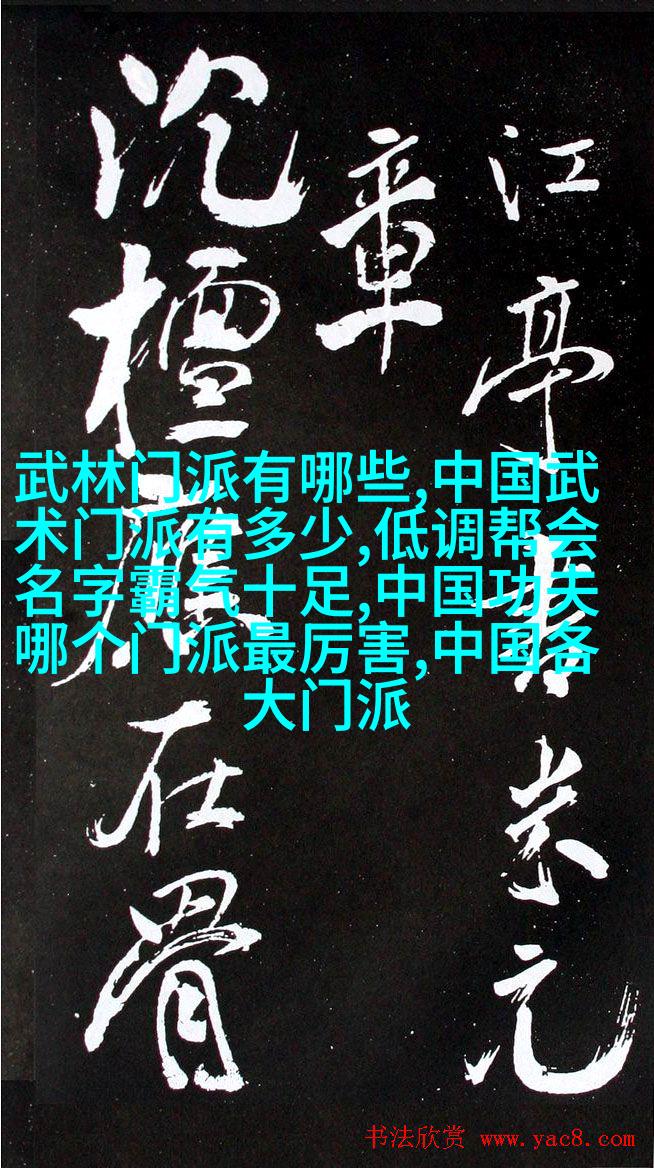 江亭米元
章
沉檀在骨
武林门派有哪些,中国武
术门派有多少,低调帮会
名字霸气十足,中国功夫
哪个门派最厉害,中国各
大门派
书法欣赏 www.yac8.com